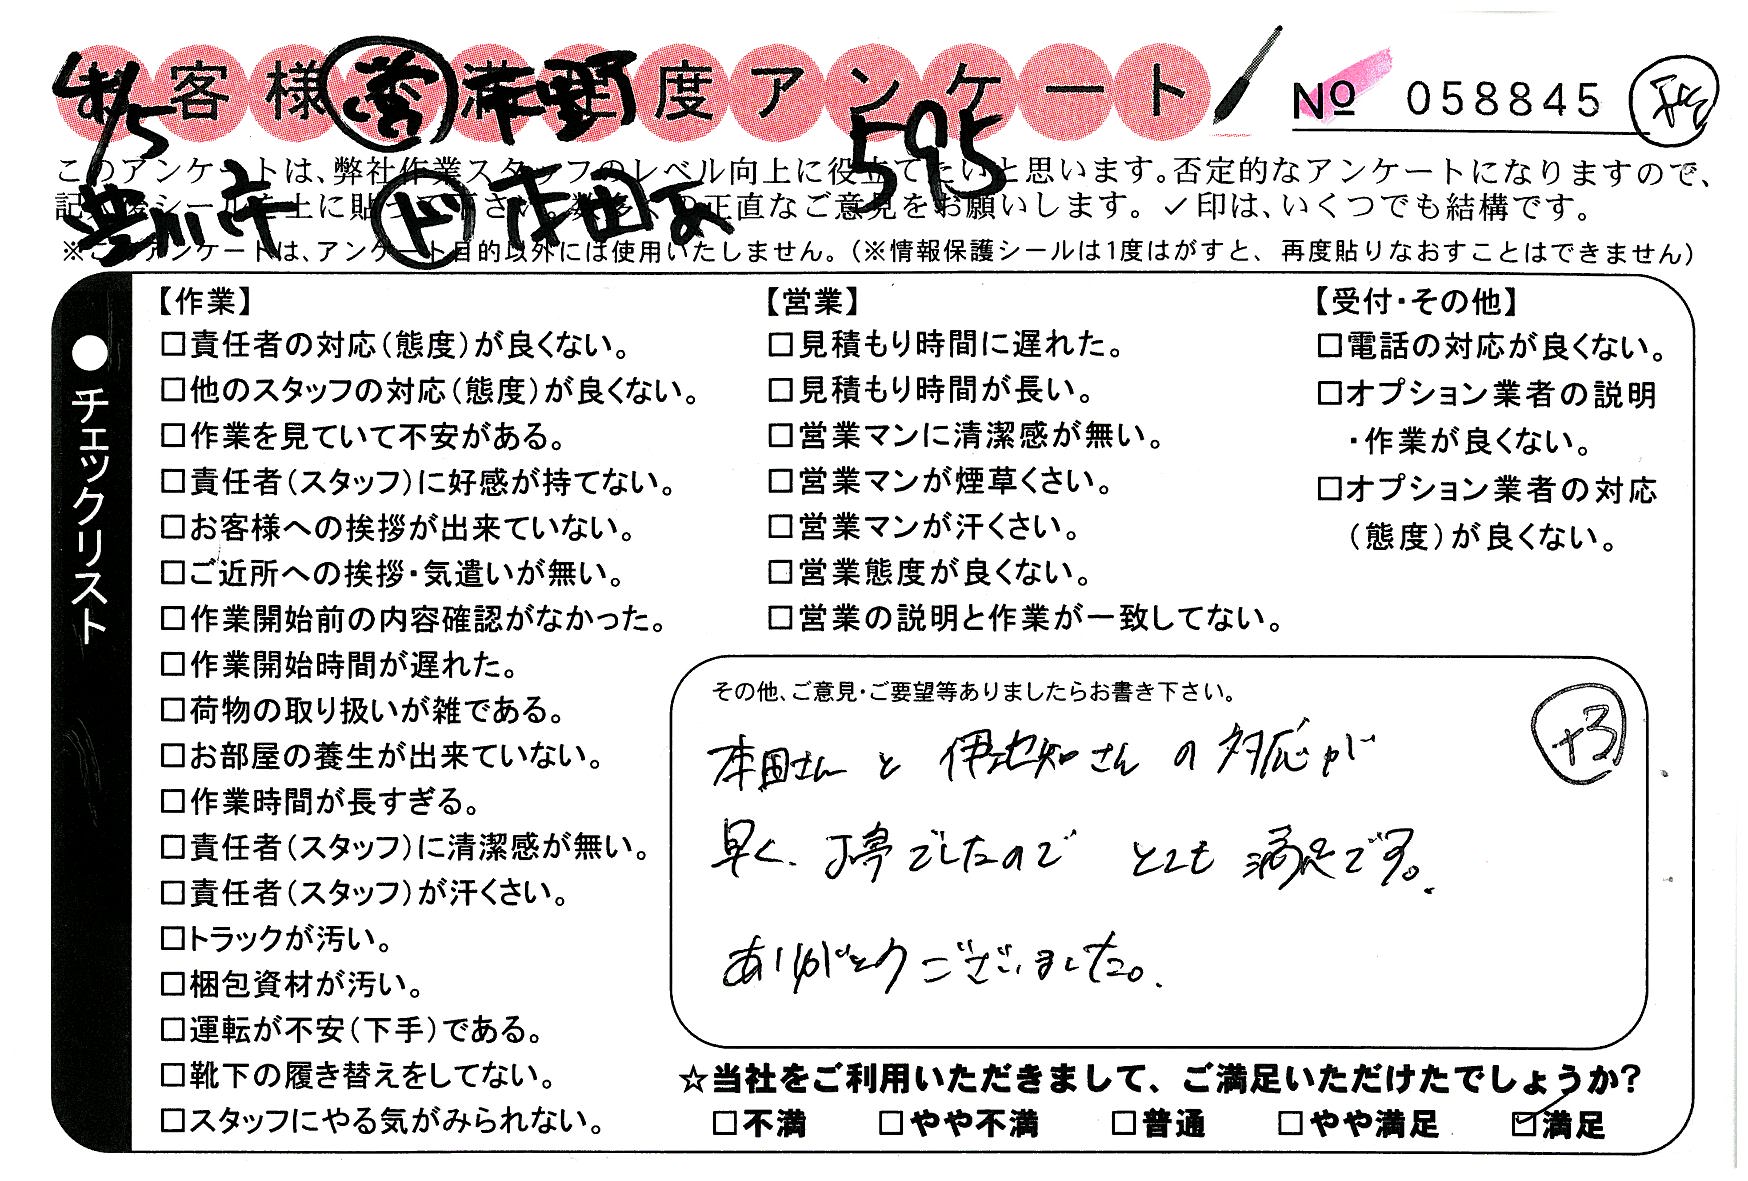 お客様満足度アンケート
№ 058845
4/5
営
595
このアンケートは、弊社作業スタッフのレベル向上に役立てたいと思います。否定的なアンケートになりますので、
記入後シールを上に貼って下さい。数多くの正直なご意見をお願いします。✓印は、いくつでも結構です。
豊川市 ド 本田
※このアンケートは、アンケート目的以外には使用いたしません。(※情報保護シールは1度はがすと、再度貼りなおすことはできません)
●チェックリスト
【作業】
□責任者の対応(態度)が良くない。
□他のスタッフの対応(態度)が良くない。
□作業を見ていて不安がある。
□責任者(スタッフ)に好感が持てない。
□お客様への挨拶が出来ていない。
□ご近所への挨拶・気遣いが無い。
□作業開始前の内容確認がなかった。
□作業開始時間が遅れた。
□荷物の取り扱いが雑である。
□お部屋の養生が出来ていない。
□作業時間が長すぎる。
□責任者(スタッフ)に清潔感が無い。
□責任者(スタッフ)が汗くさい。
□トラックが汚い。
□梱包資材が汚い。
□運転が不安(下手)である。
□靴下の履き替えをしてない。
□スタッフにやる気がみられない。
【営業】
□見積もり時間に遅れた。
□見積もり時間が長い。
□営業マンに清潔感が無い。
□営業マンが煙草くさい。
□営業マンが汗くさい。
□営業態度が良くない。
□営業の説明と作業が一致してない。
【受付・その他】
□電話の対応が良くない。
□オプション業者の説明
・作業が良くない。
□オプション業者の対応
(態度)が良くない。
その他、ご意見・ご要望等ありましたらお書き下さい。
+3
本田さんと伊地知さんの対応が
早く、丁寧でしたので とても満足です。
ありがとうございました。
☆当社をご利用いただきまして、ご満足いただけたでしょうか?
□不満 □やや不満 □普通 □やや満足 ☑満足